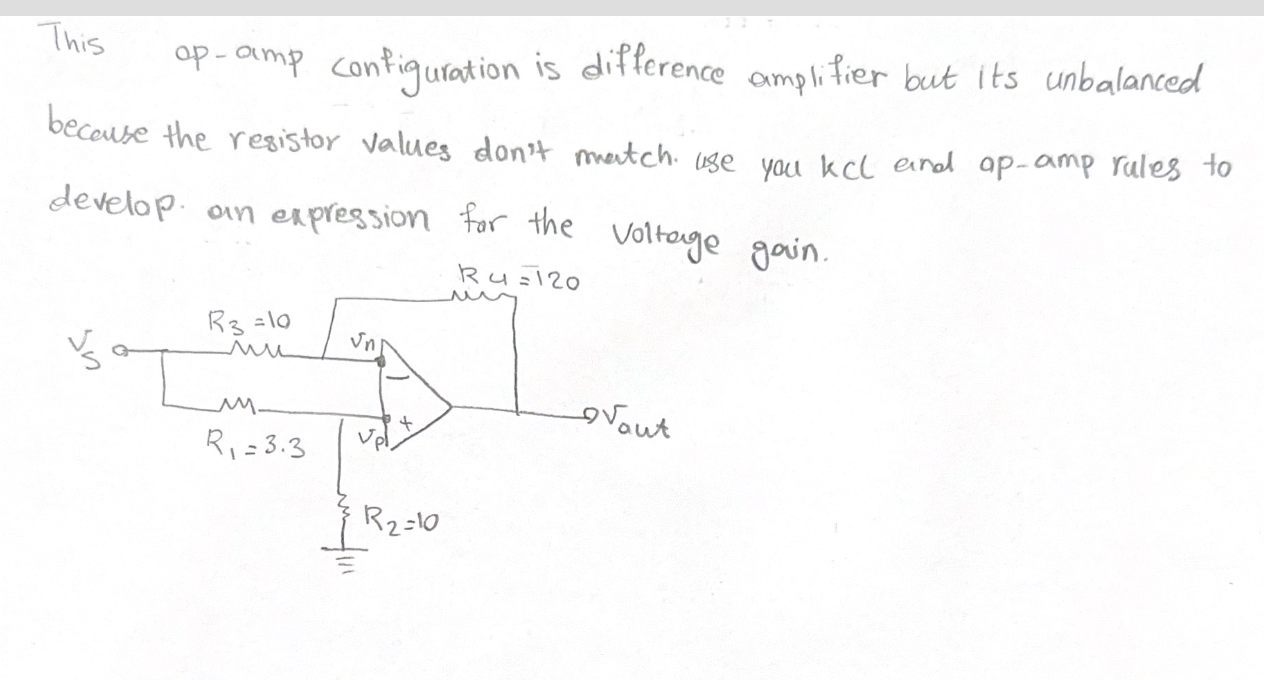 This op-amp configuration is difference amplifier but its unbalanced
because the resistor values don't match. use you kcl and op-amp rules to
develop. an expression for the voltage gain.
R4=120
R3=10
Vs
Vn
−
+
Vp
Vout
R1=3.3
R2=10